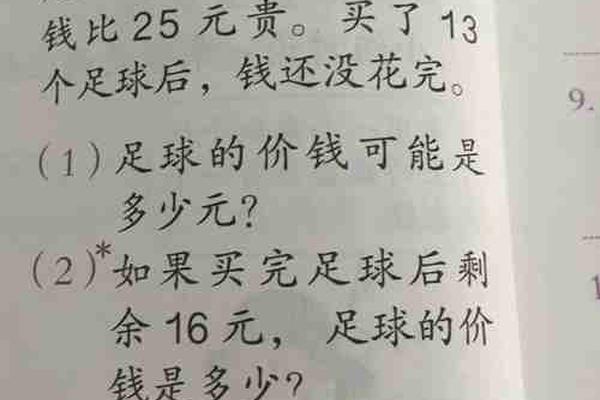 钱比 25 元贵。买了 13
个足球后，钱还没花完。
(1) 足球的价钱可能是
多少元?
(2)* 如果买完足球后剩
余 16 元， 足球的价
钱是多少?
9.
1